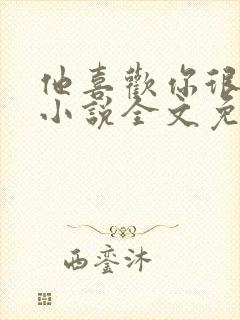 他喜歡你很
小說全文免
西鸞沐